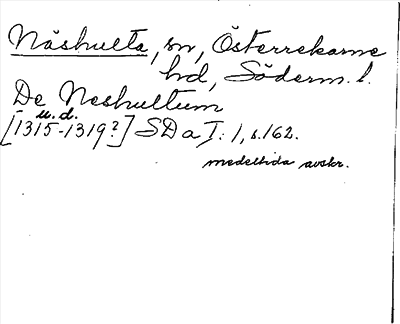 Näshulta, sn, Österrekarne
hd, Söderm. l.
De Neshultum
u.d.
[1315-1319?] SD a I: 1, s. 162.
medeltida avskr.